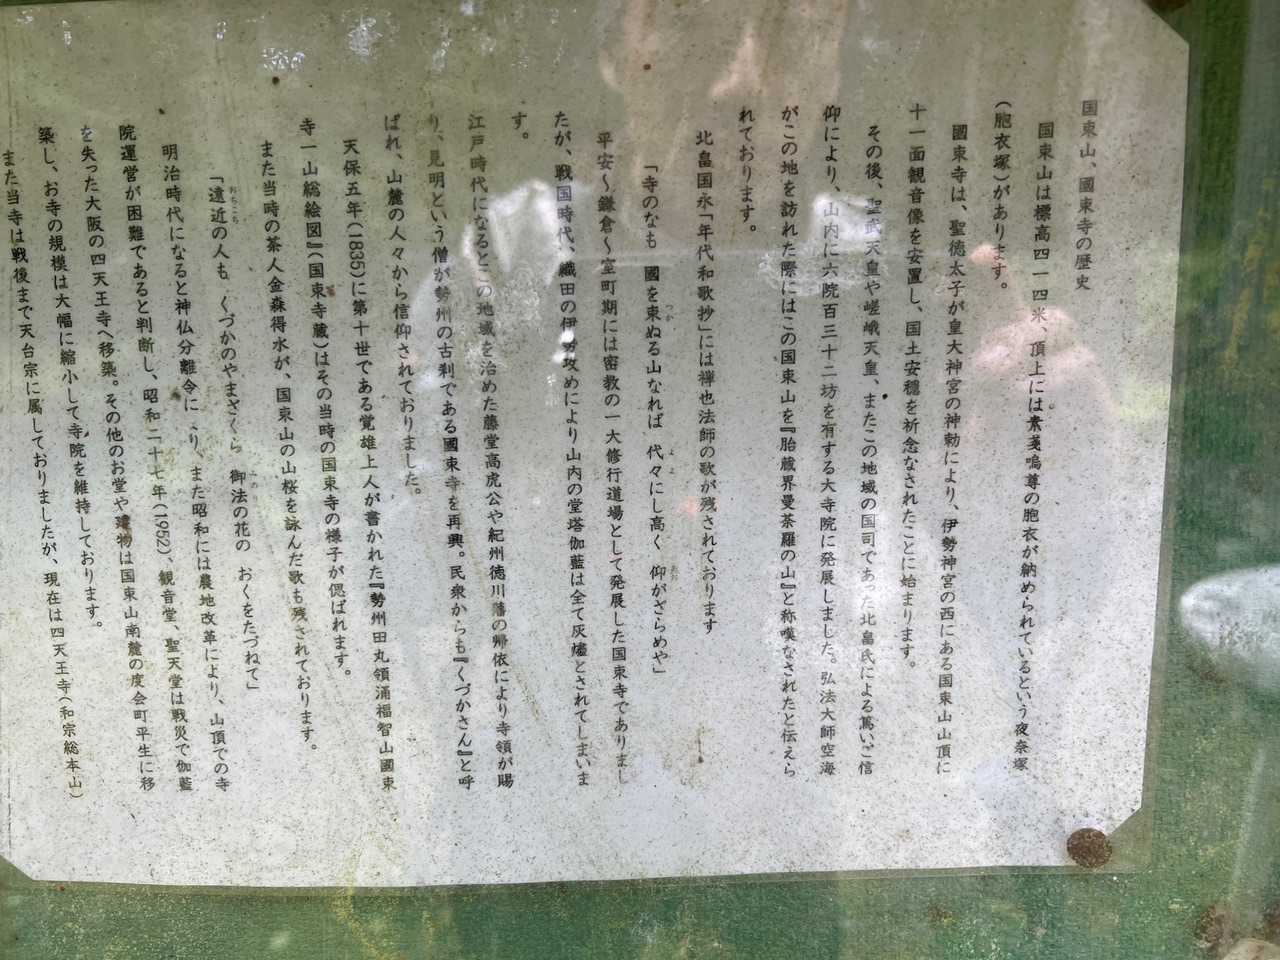 国東山、國東寺の歴史
国東山は標高四一四米、頂上には素戔嗚尊の胞衣が納められているという夜奈塚
(胞衣塚)があります。
國東寺は、聖徳太子が皇大神宮の神勅により、伊勢神宮の西にある国東山山頂に
十一面観音像を安置し、国土安穏を祈念なされたことに始まります。
その後、聖武天皇や嵯峨天皇、またこの地域の国司であった北畠氏による篤いご信
仰により、山内に六院百三十二坊を有する大寺院に発展しました。弘法大師空海
がこの地を訪れた際にはこの国東山を『胎蔵界曼荼羅の山』と称嘆なされたと伝えら
れております。
北畠国永「年代和歌抄」には禅也法師の歌が残されております
「寺のなも 國を東ぬる山なれば 代々にし高く 仰がざらめや」
つか
よ よ
あお
平安〜鎌倉〜室町期には密教の一大修行道場として発展した国東寺でありまし
たが、戦国時代、織田の伊勢攻めにより山内の堂塔伽藍は全て灰燼とされてしまいま
す。
江戸時代になるとこの地域を治めた藤堂高虎公や紀州徳川藩の帰依により寺領が賜
り、見明という僧が勢州の古刹である國東寺を再興。民衆からも『くづかさん』と呼
ばれ、山麓の人々から信仰されておりました。
天保五年(1835)に第十世である覚雄上人が書かれた『勢州田丸領涌福智山國東
寺一山総絵図』(国東寺蔵)はその当時の国東寺の様子が偲ばれます。
また当時の茶人金森得水が、国東山の山桜を詠んだ歌も残されております。
「遠近の人も くづかのやまざくら 御法の花の おくをたづねて」
おちこち
みのり
明治時代になると神仏分離令に り、また昭和には農地改革により、山頂での寺
院運営が困難であると判断し、昭和二十七年(1952)、観音堂、聖天堂は戦災で伽藍
を失った大阪の四天王寺へ移築。その他のお堂や建物は国東山南麓の度会町平生に移
築し、お寺の規模は大幅に縮小して寺院を維持しております。
また当寺は戦後まで天台宗に属しておりましたが、現在は四天王寺(和宗総本山)